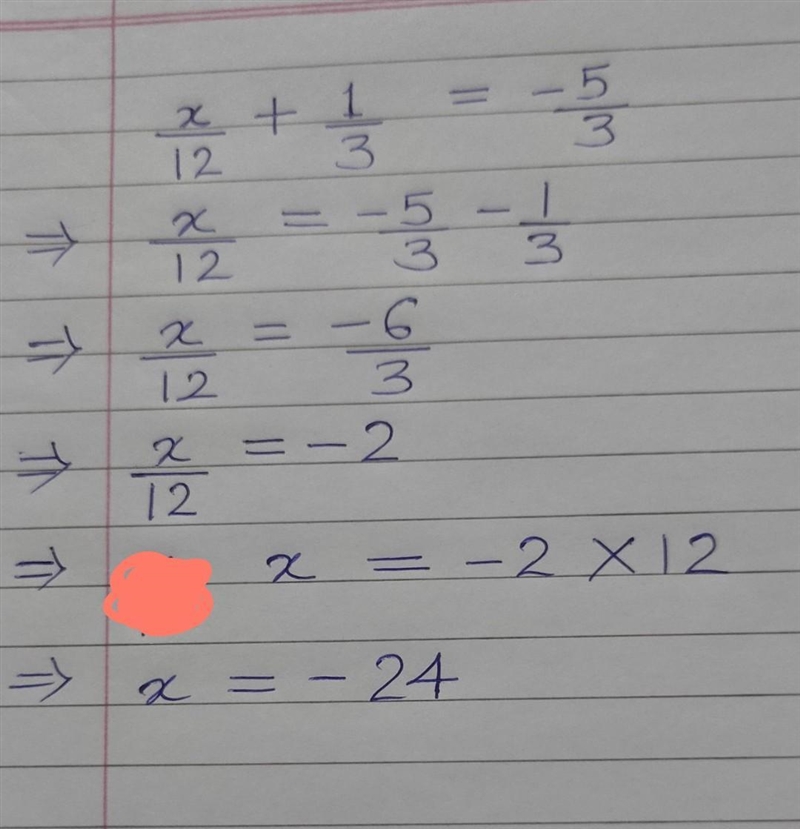 x/12 + 1/3 = -5/3
⇒ x/12 = -5/3 - 1/3
⇒ x/12 = -6/3
⇒ x/12 = -2
⇒ x = -2 × 12
⇒ x = -24